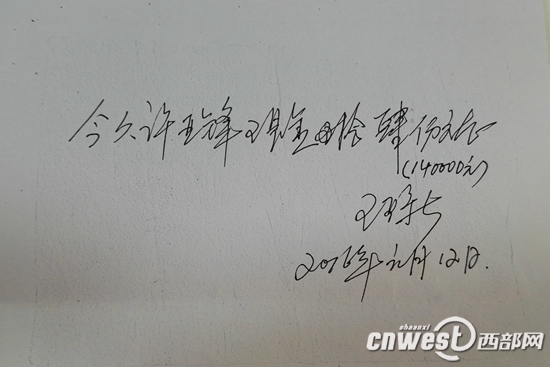 今欠许 现金 拾肆万元正
(140000元)
2016年元月12日.
shaanxi
cnwest西部网